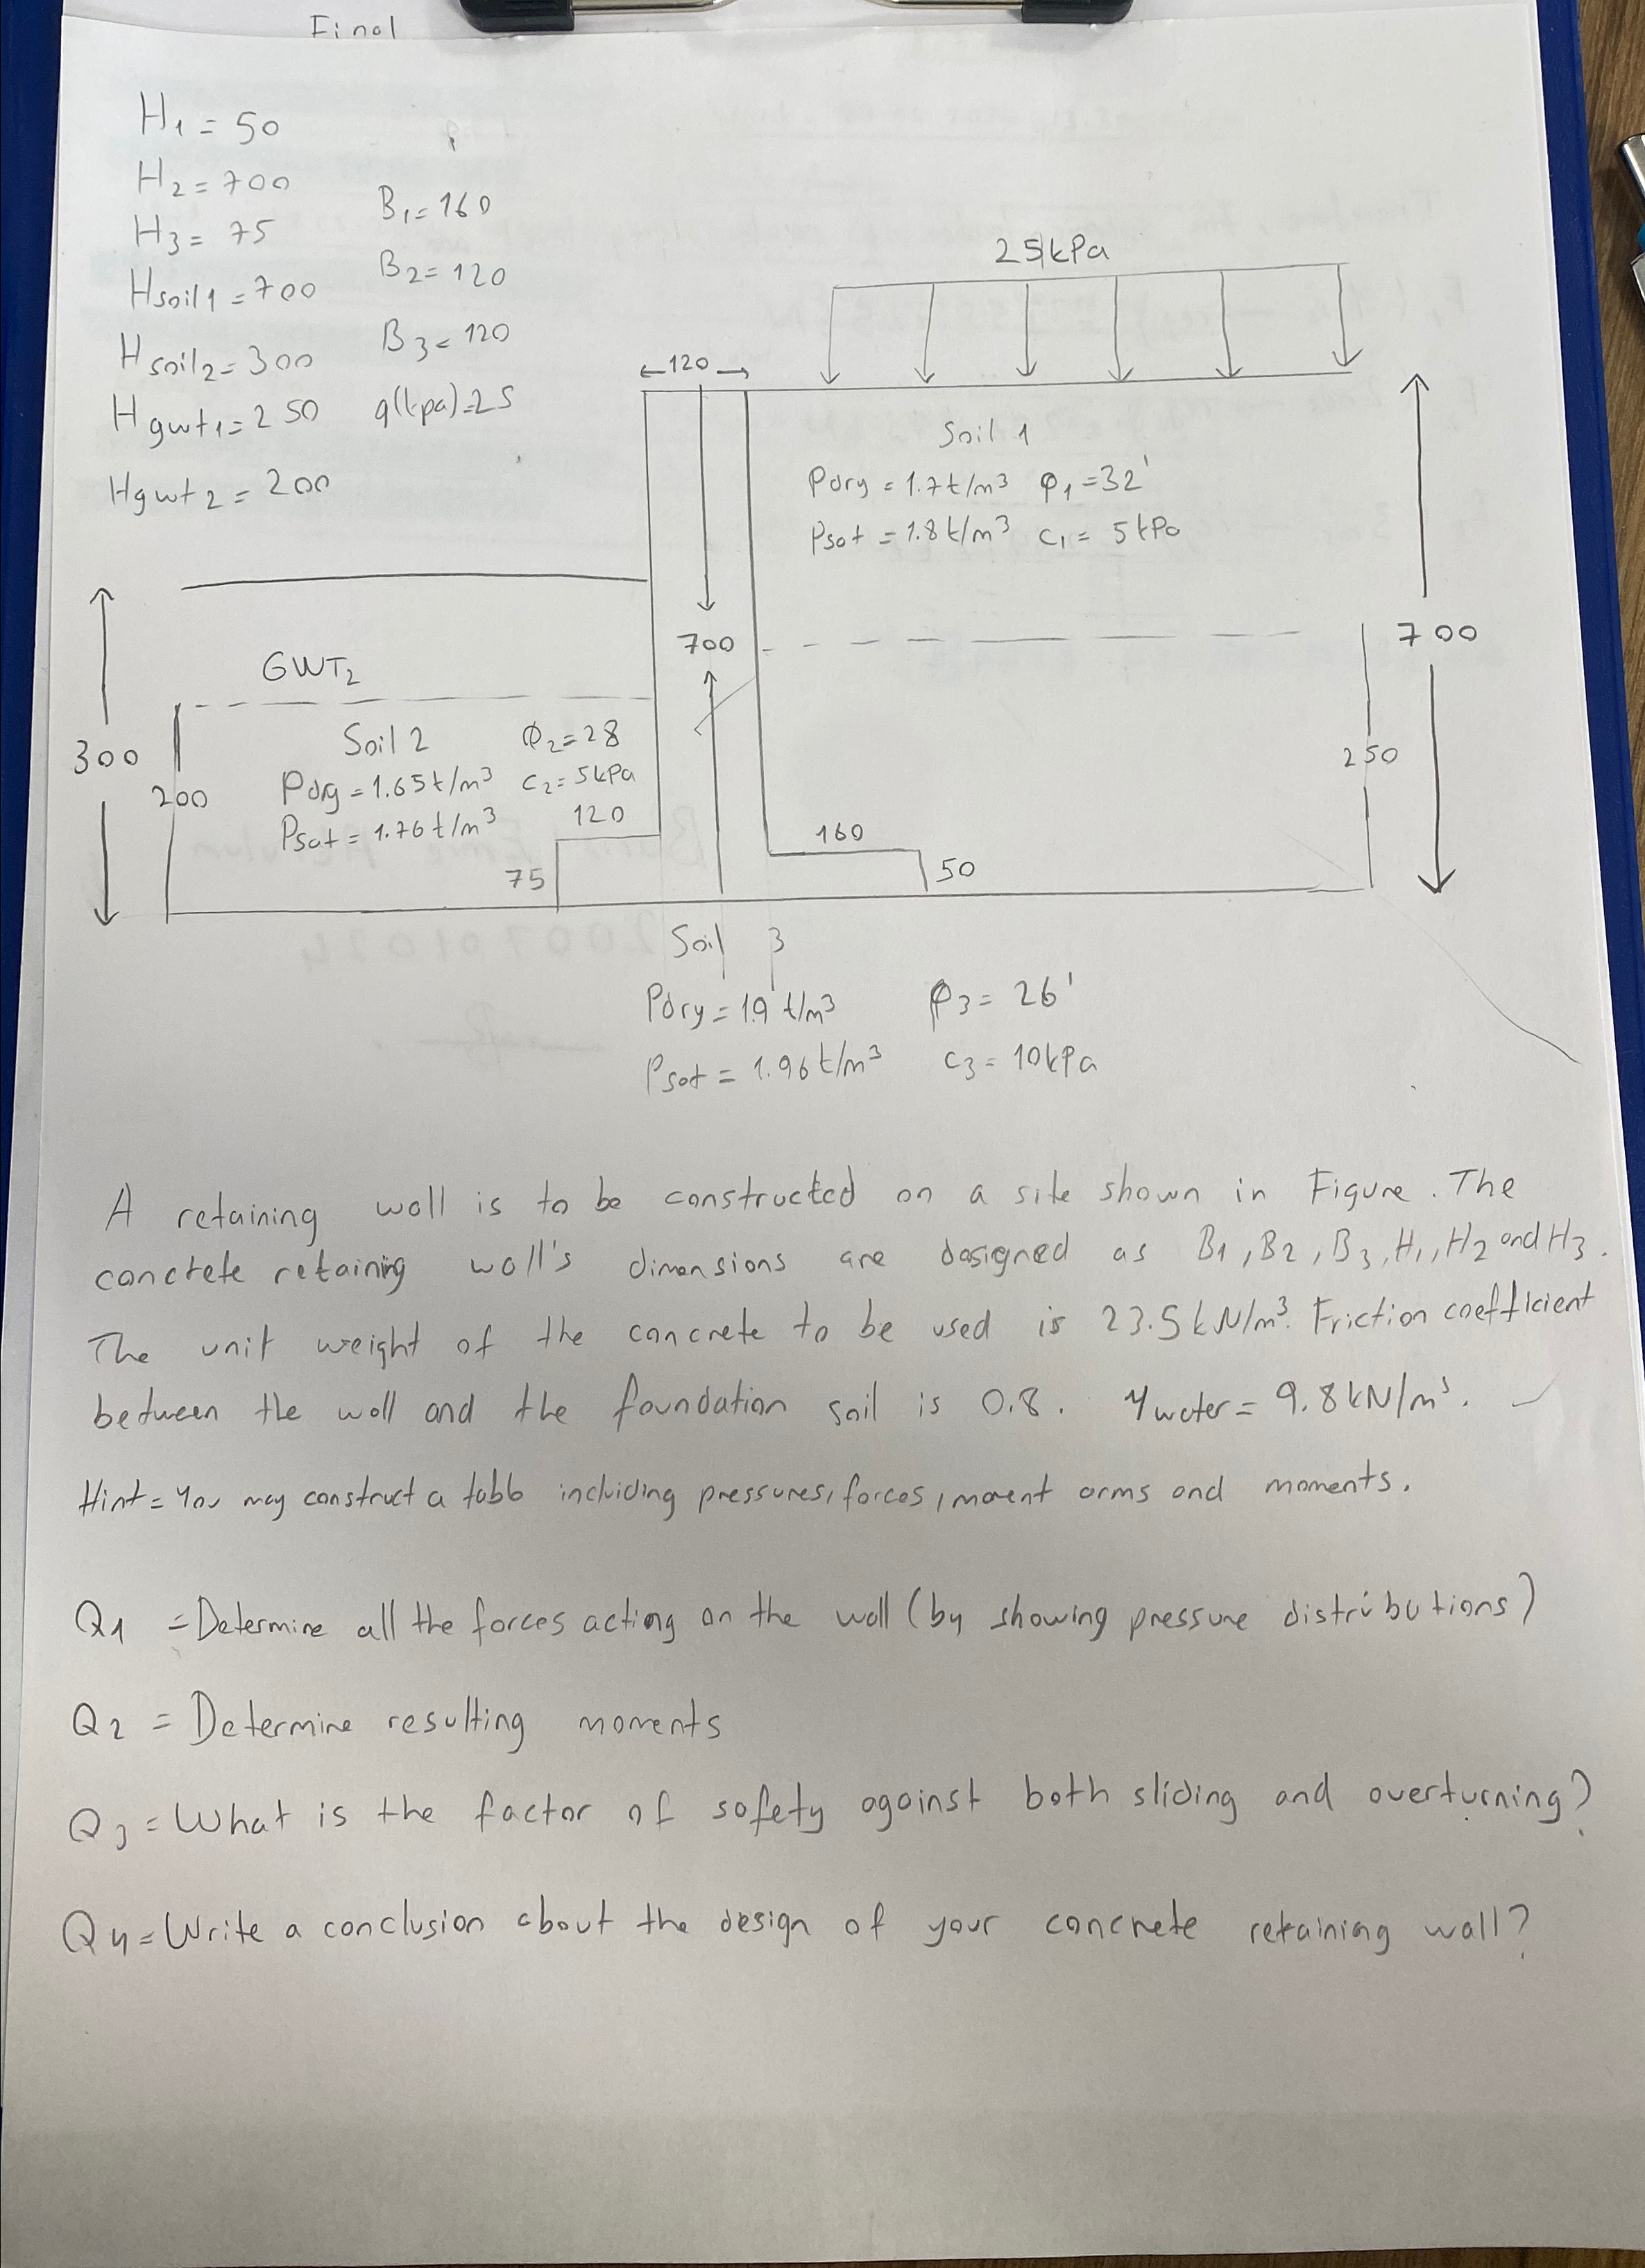 Final
H1 = 50
H2 = 700
H3 = 75
Hsoil1 = 700
Hsoil2 = 300
Hgwt1 = 250
Hgwt2 = 200
B1 = 160
B2 = 120
B3 = 120
q(kpa) = 25
25 kPa
←120→
Soil 1
ρdry = 1.7 t/m³ φ1 = 32'
ρsat = 1.8 t/m³ c1 = 5 kPa
700
700
GWT2
300
200
Soil 2 φ2 = 28
ρdry = 1.65 t/m³ c2 = 5 kPa
ρsat = 1.76 t/m³ 120
75
160
50
250
Soil 3
ρdry = 1.9 t/m³ φ3 = 26'
ρsat = 1.96 t/m³ c3 = 10 kPa
A retaining wall is to be constructed on a site shown in Figure. The
concrete retaining wall's dimensions are designed as B1, B2, B3, H1, H2 and H3.
The unit weight of the concrete to be used is 23.5 kN/m³. Friction coefficient
between the wall and the foundation soil is 0.8. γwater = 9.8 kN/m³.
Hint = You may construct a table including pressures, forces, moment arms and moments.
Q1 = Determine all the forces acting on the wall (by showing pressure distributions)
Q2 = Determine resulting moments
Q3 = What is the factor of safety against both sliding and overturning?
Q4 = Write a conclusion about the design of your concrete retaining wall?